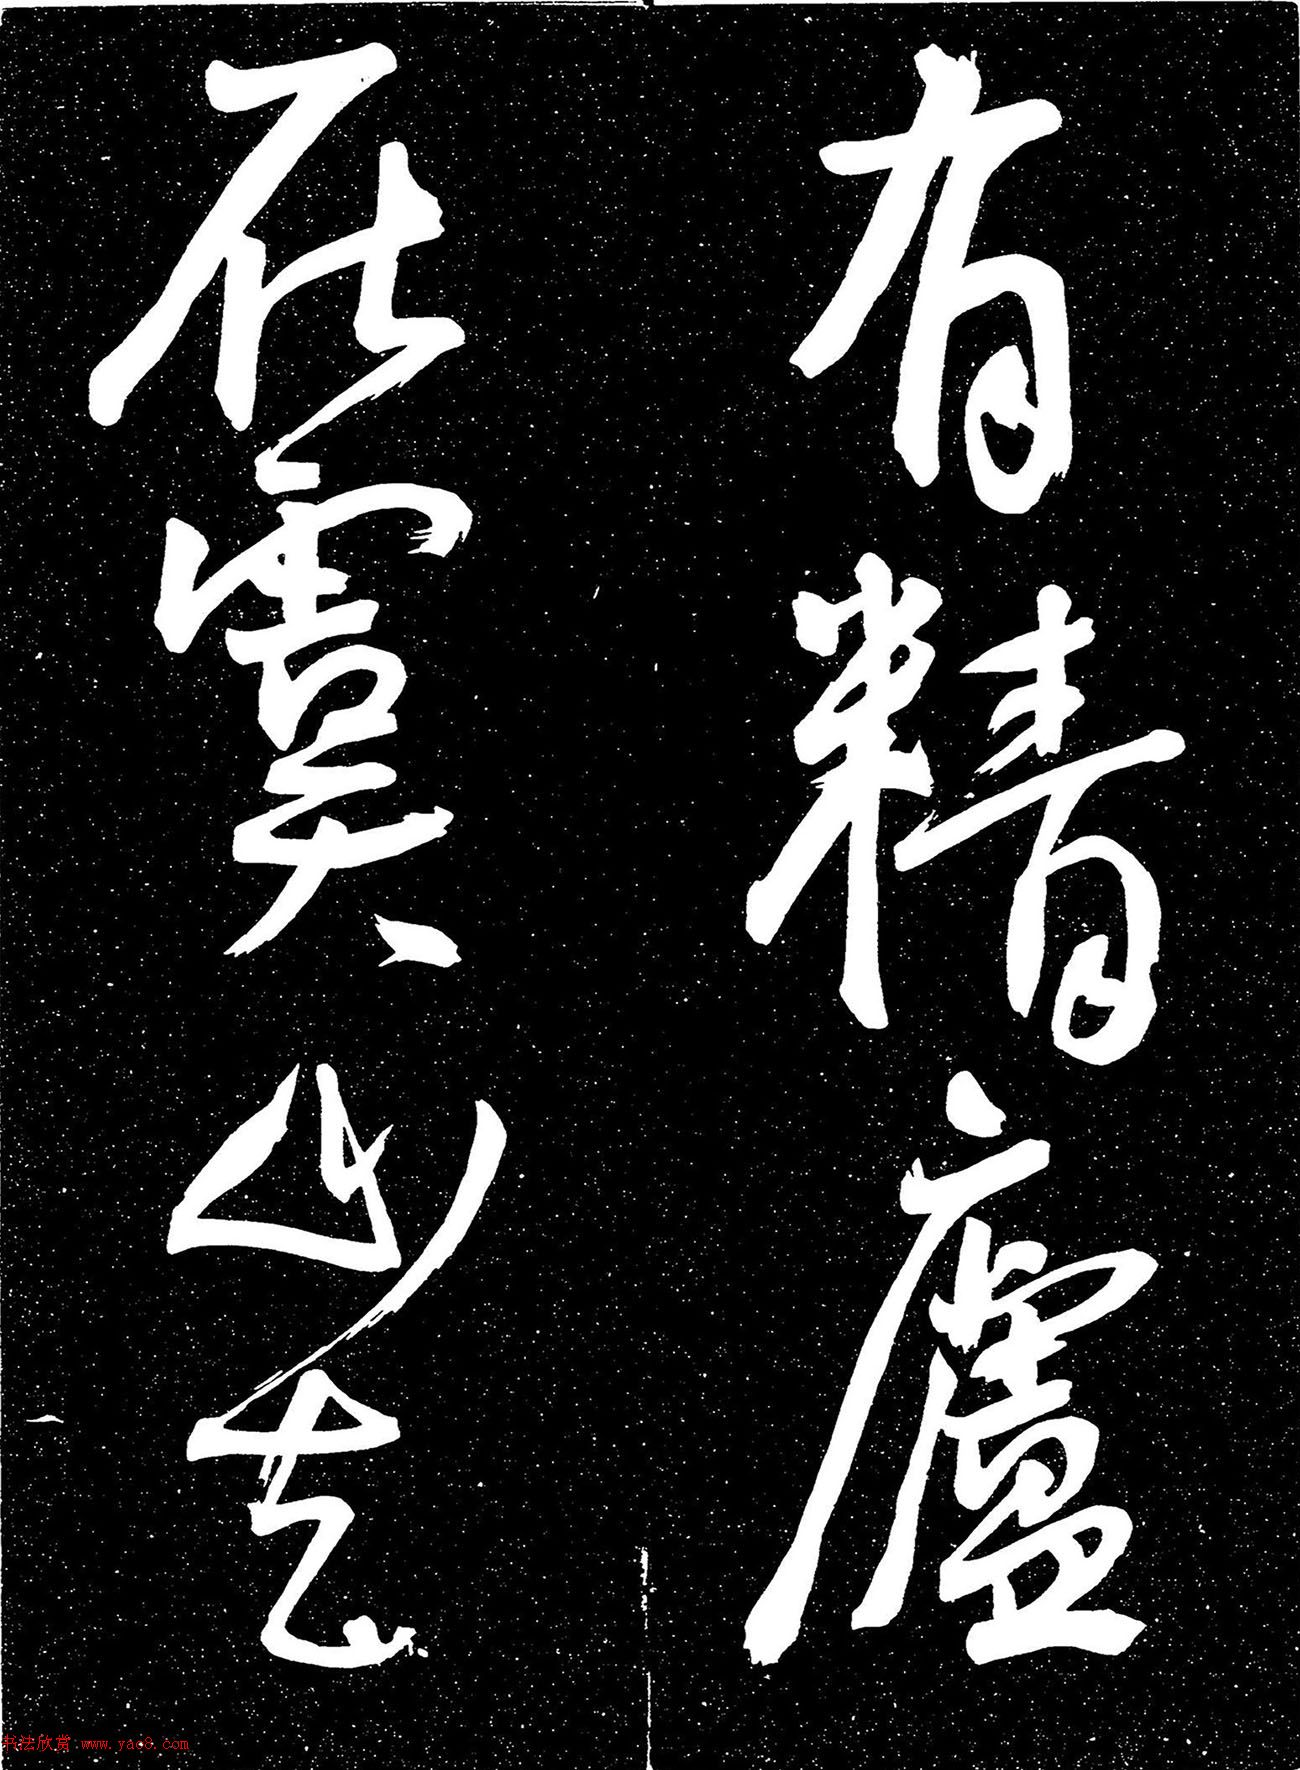 有精廬
在虞山去
书法欣赏 www.yac8.com